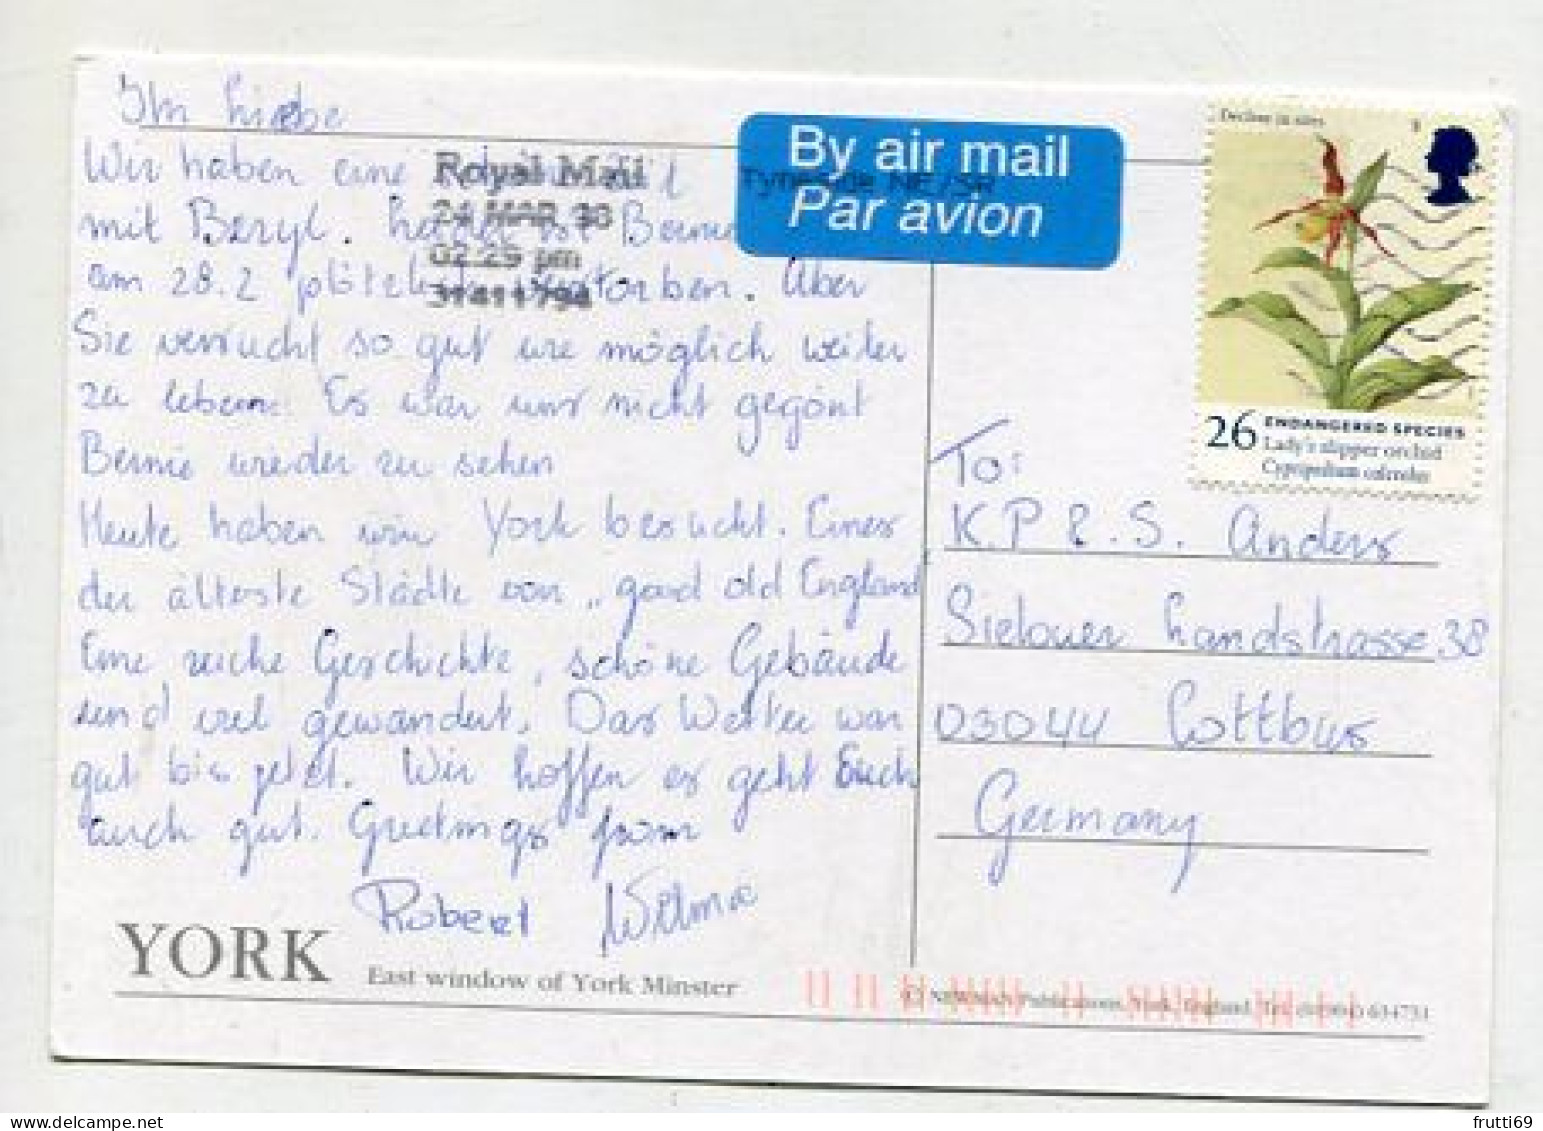 Ihr Liebe
Wir haben eine
mit Beryl. ist Bernie
am 28.2 plötzlich verstorben. Aber
Sie versucht so gut wie möglich weiter
zu leben. Es war uns nicht gegönt
Bernie wieder zu sehen
Heute haben wir York besucht. Eines
der älteste Städte von „good old England
Eine reiche Geschichte, schöne Gebäude
und viel gewandert. Das Wetter war
gut bis jetzt. Wir hoffen es geht Euch
auch gut. Greetings from
Robert Wilma
YORK East window of York Minster
Royal Mail
24 MAR 98
02:29 pm
31411794
Tyneside NE/SR
By air mail
Par avion
Decline in sites
26 ENDANGERED SPECIES
Lady's slipper orchid
Cypripedium calceolus
To:
K.P & S. Anders
Sielower Landstrasse 38
03044 Cottbus
Germany
(C) NEWMAN Publications, York, England. Tel. (01904) 634731
frutti69